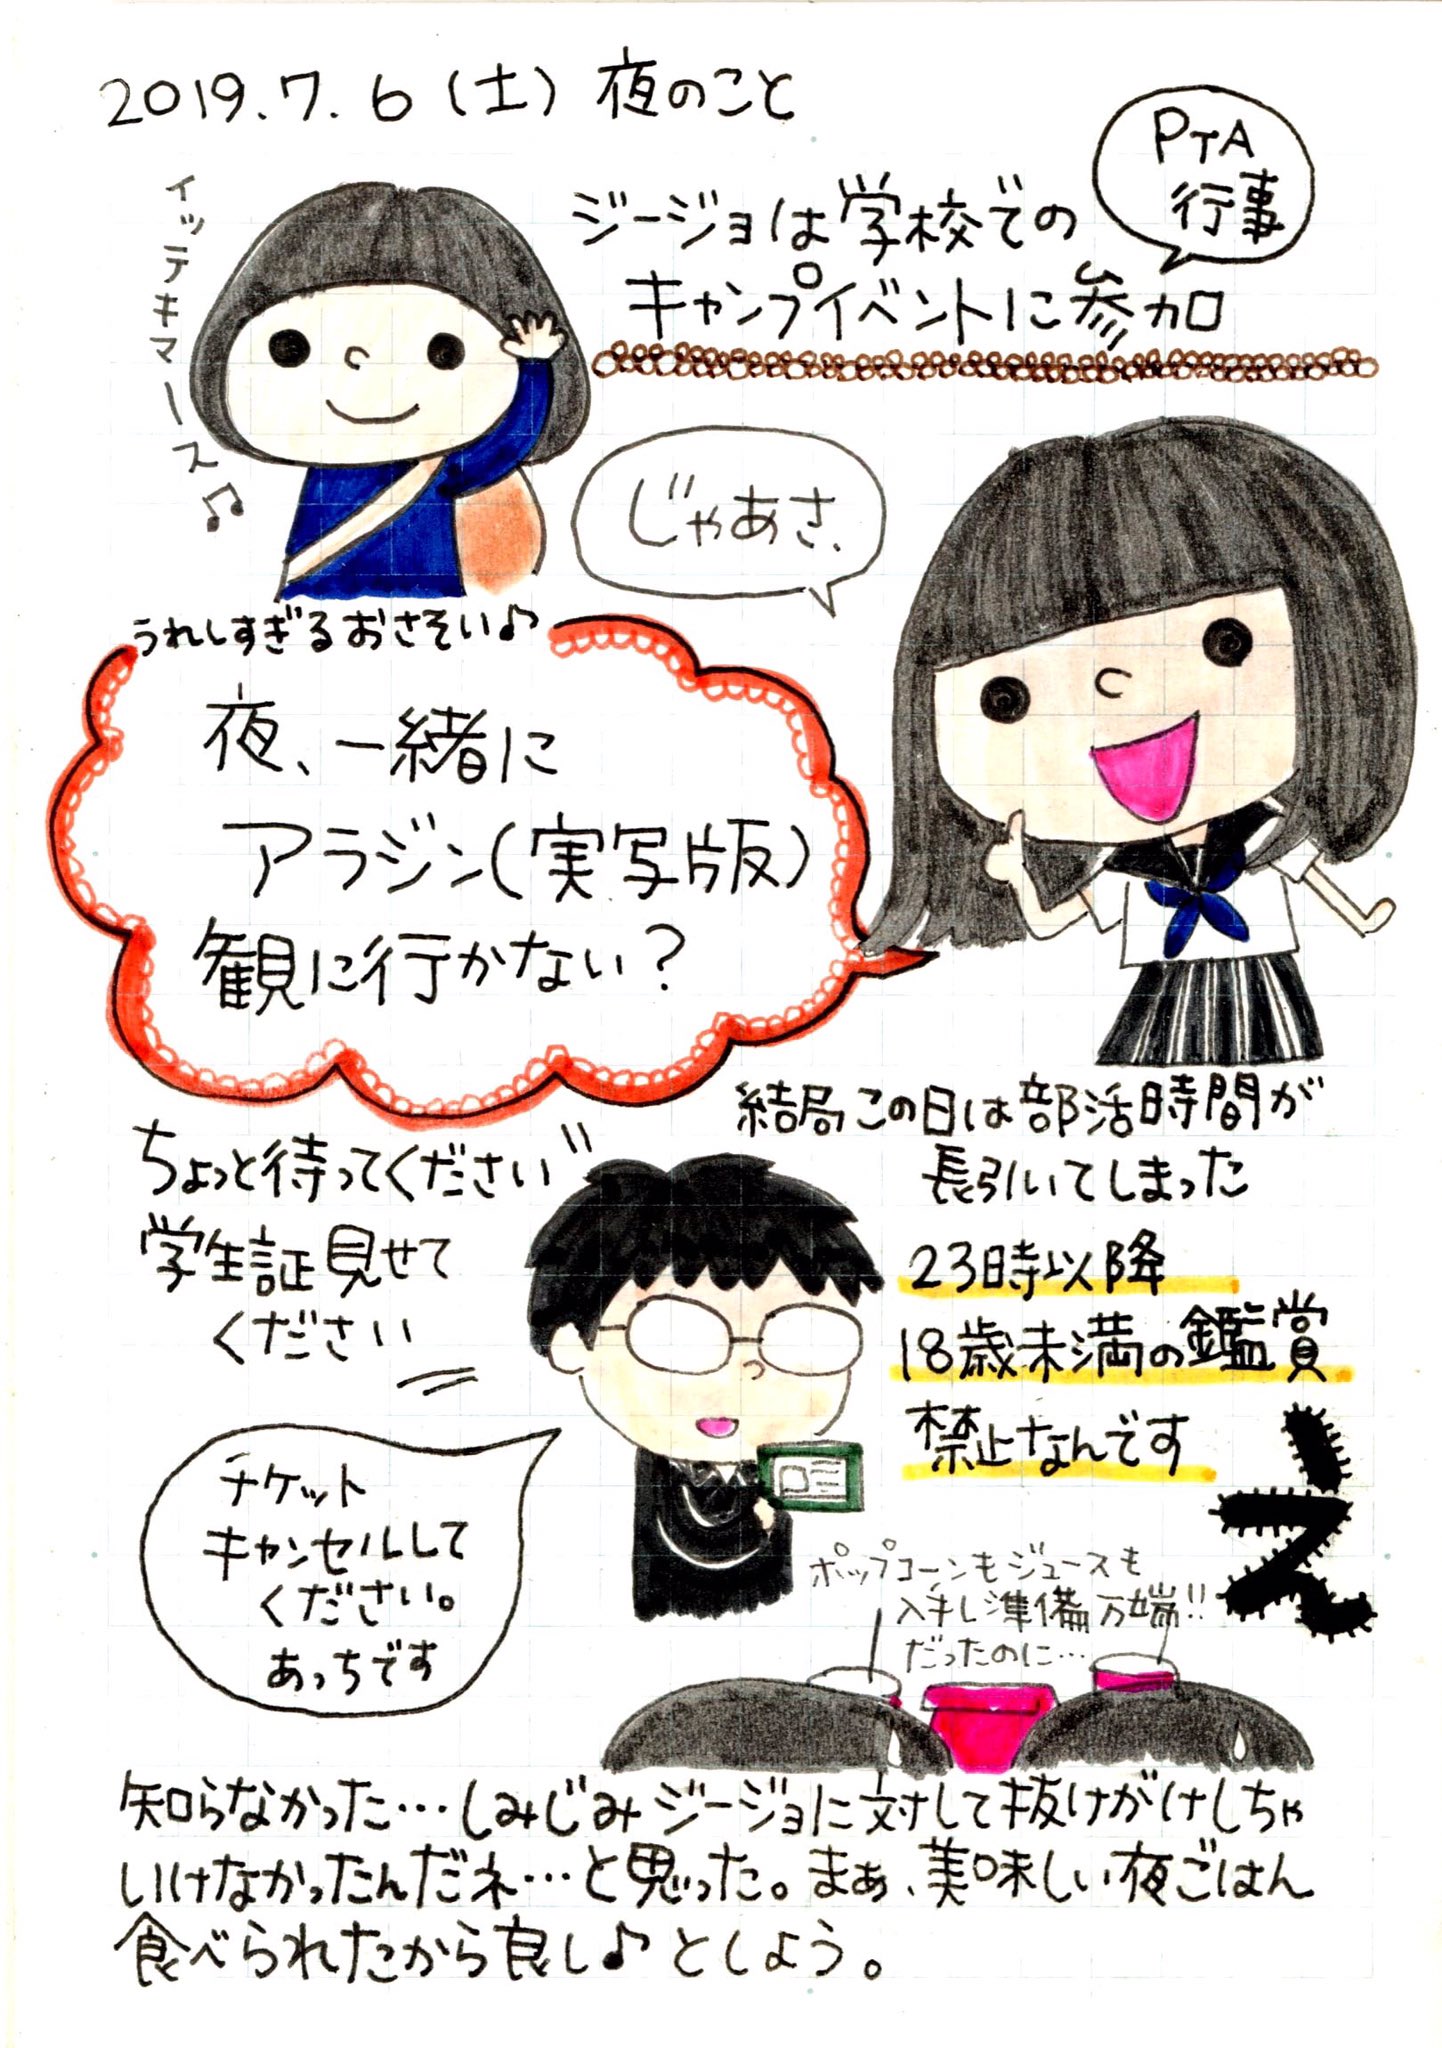 2019.7.6(土)夜のこと
PTA
行事
イッテキマース♫
ジージョは学校での
キャンプイベントに参加
じゃあさ、
うれしすぎるおさそい♪
夜、一緒に
アラジン(実写版)
観に行かない？
結局この日は部活時間が
長引いてしまった
ちょっと待ってください"
学生証見せて
ください
23時以降
18歳未満の鑑賞
禁止なんです
え
チケット
キャンセルして
ください。
あっちです
ポップコーンもジュースも
入手し準備万端!!
だったのに…
知らなかった…しみじみジージョに対して抜けがけしちゃ
いけなかったんだネ…と思った。まぁ、美味しい夜ごはん
食べられたから良し♪としよう。